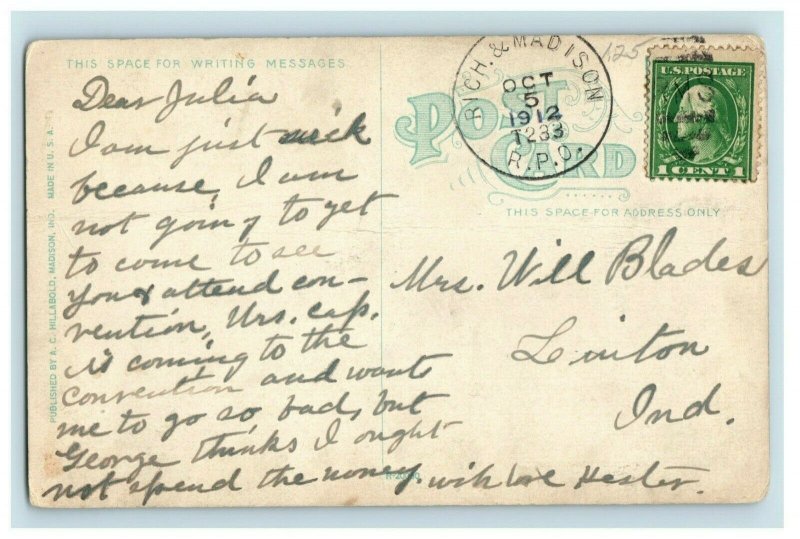 THIS SPACE FOR WRITING MESSAGES.
Dear Julia
I am just sick
because, I am
not going to get
to come to see
you & attend con-
vention, Mrs. Cap.
is coming to the
convention and wants
me to go so bad, but
George thinks I ought
not spend the money. with love Hester.
PUBLISHED BY A. C. HILLABOLD, MADISON, IND. MADE IN U. S. A.
POST CARD
RICH. & MADISON
OCT
5
1912
T233
R.P.O.
125
U.S. POSTAGE
1 CENT 1
THIS SPACE FOR ADDRESS ONLY.
Mrs. Will Blades
Linton
Ind.